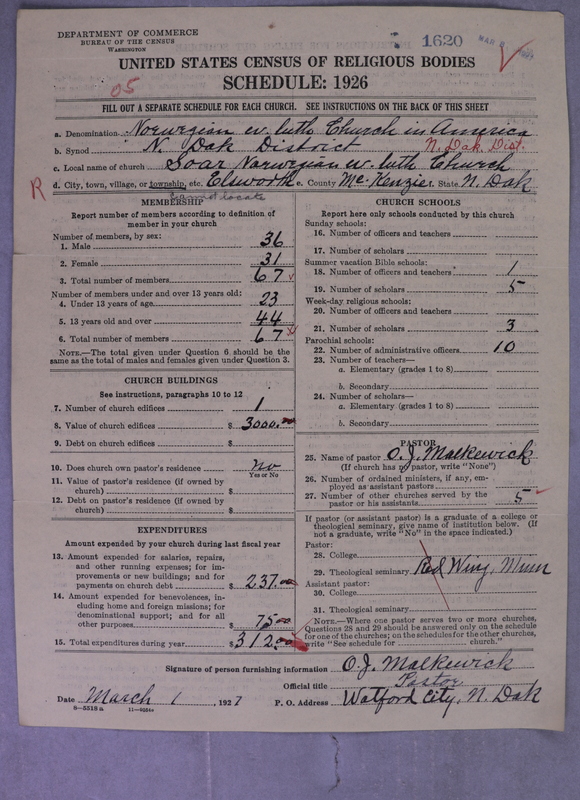 DEPARTMENT OF COMMERCE
BUREAU OF THE CENSUS
WASHINGTON
1620
MAR
UNITED STATES CENSUS OF RELIGIOUS BODIES
05
SCHEDULE: 1926
FILL OUT A SEPARATE SCHEDULE FOR EACH CHURCH. SEE INSTRUCTIONS ON THE BACK OF THIS SHEET
a. Denomination Norwegian ev. luth Church in America
b. Synod N. Dak District N. Dak. Dist.
c. Local name of church Soar Norwegian ev. luth Church
R d. City, town, village, or township, etc. Elsworth e. County Mc. Kenzie State N. Dak
Cannot locate
MEMBERSHIP
Report number of members according to definition of member in your church
Number of members, by sex:
1. Male 36
2. Female 31
3. Total number of members 67
Number of members under and over 13 years old:
4. Under 13 years of age 23
5. 13 years old and over 44
6. Total number of members 67
NOTE.—The total given under Question 6 should be the same as the total of males and females given under Question 3.
CHURCH BUILDINGS
See instructions, paragraphs 10 to 12
7. Number of church edifices 1
8. Value of church edifices $ 3000.00
9. Debt on church edifices $
10. Does church own pastor's residence No
Yes or No
11. Value of pastor's residence (if owned by church) $
12. Debt on pastor's residence (if owned by church) $
EXPENDITURES
Amount expended by your church during last fiscal year
13. Amount expended for salaries, repairs, and other running expenses; for improvements or new buildings; and for payments on church debt $ 237.00
14. Amount expended for benevolences, including home and foreign missions; for denominational support; and for all other purposes $ 75.00
15. Total expenditures during year $ 312.00
CHURCH SCHOOLS
Report here only schools conducted by this church
Sunday schools:
16. Number of officers and teachers
17. Number of scholars
Summer vacation Bible schools:
18. Number of officers and teachers 1
19. Number of scholars 5
Week-day religious schools:
20. Number of officers and teachers
21. Number of scholars 3
Parochial schools:
22. Number of administrative officers 10
23. Number of teachers—
a. Elementary (grades 1 to 8)
b. Secondary
24. Number of scholars—
a. Elementary (grades 1 to 8)
b. Secondary
PASTOR
25. Name of pastor O. J. Malkewick
(If church has no pastor, write "None")
26. Number of ordained ministers, if any, employed as assistant pastors
27. Number of other churches served by the pastor or his assistants 5
If pastor (or assistant pastor) is a graduate of a college or theological seminary, give name of institution below. (If not a graduate, write "No" in the space indicated.)
Pastor:
28. College
29. Theological seminary Red Wing, Minn
Assistant pastor:
30. College
31. Theological seminary
NOTE.—Where one pastor serves two or more churches, Questions 28 and 29 should be answered only on the schedule for one of the churches; on the schedules for the other churches, write "See schedule for church."
Signature of person furnishing information O. J. Malkewick
Official title Pastor
Date March 1, 1927 P. O. Address Watford City, N. Dak